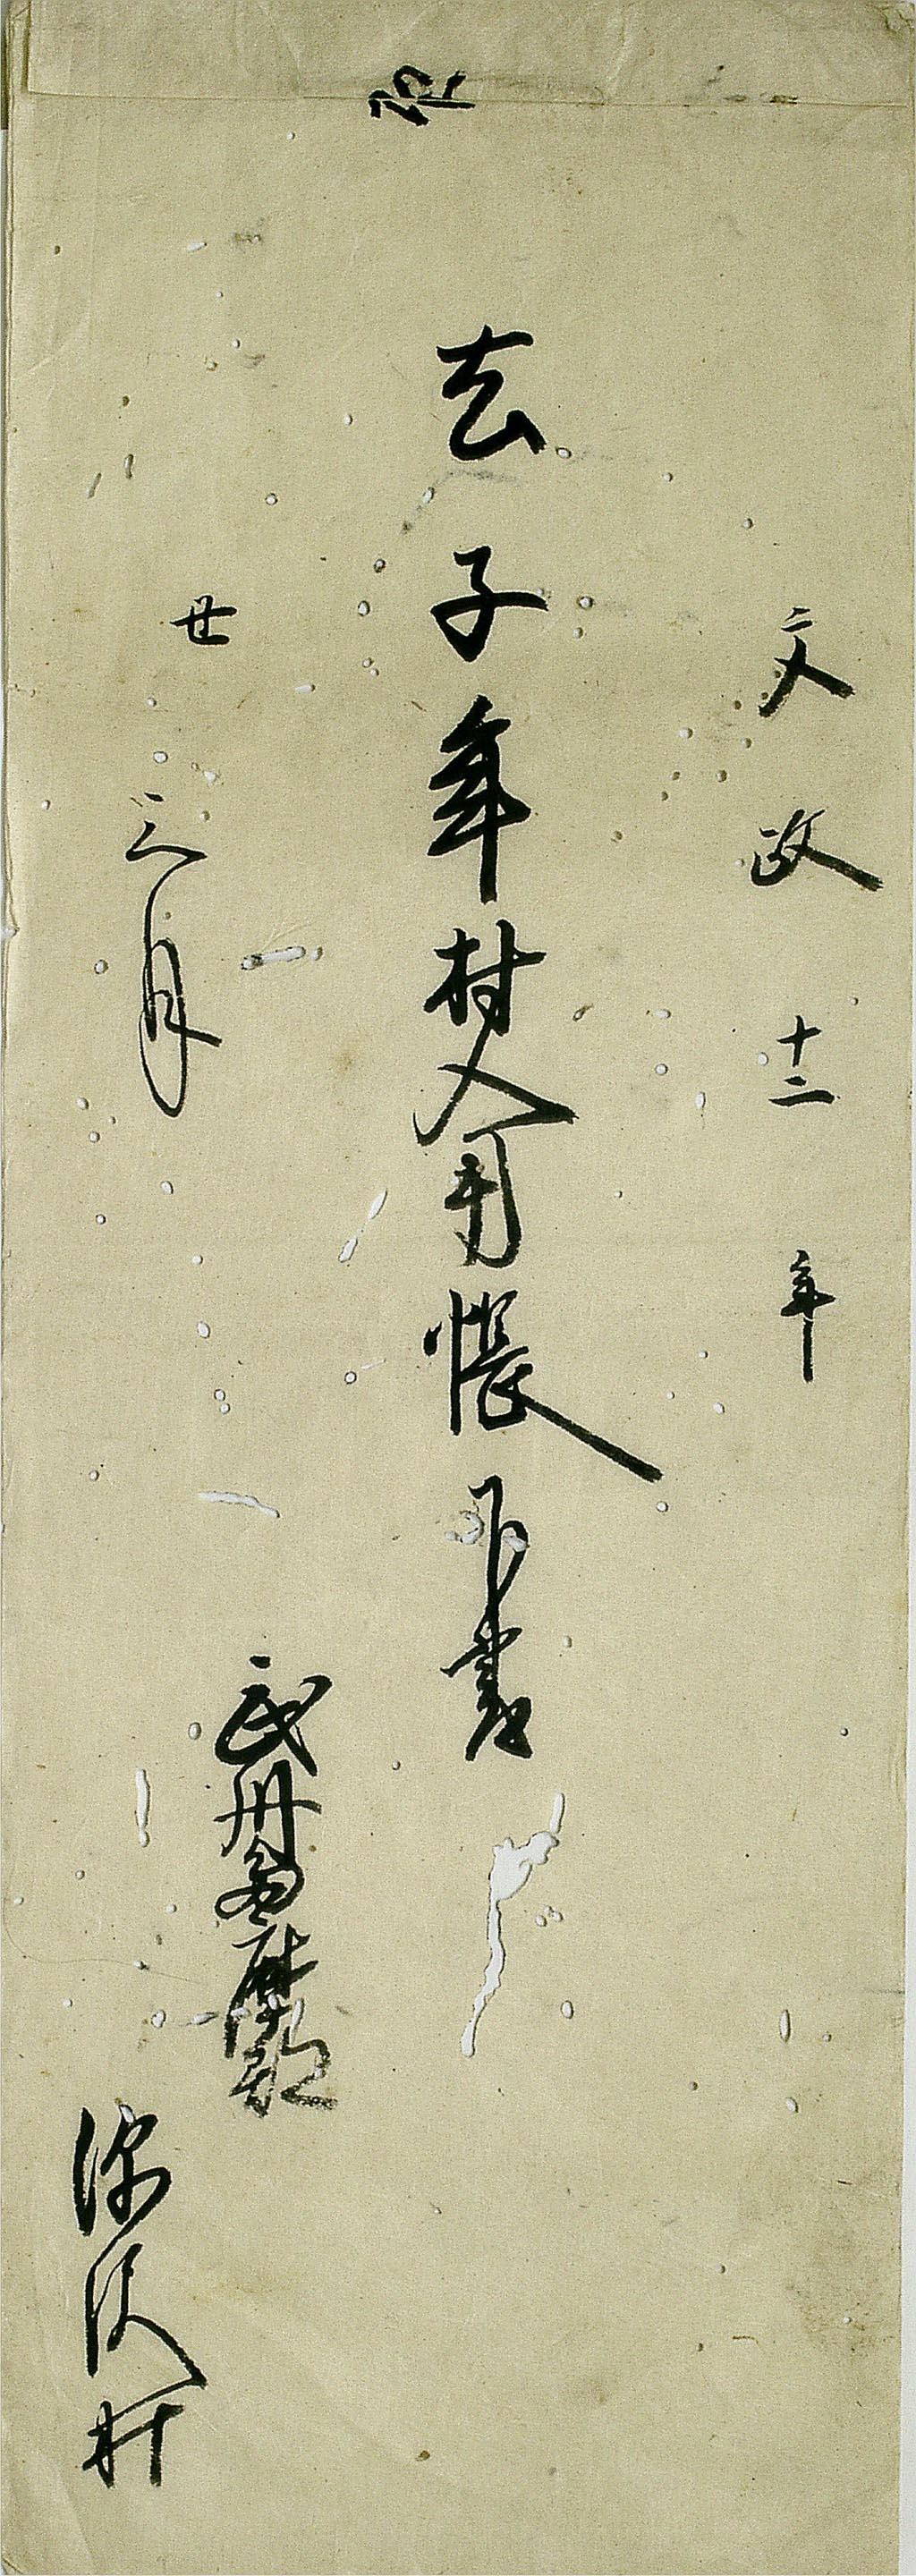 文政十二年
去子年村入用帳下書
丑三月
武州多摩郡
深沢村